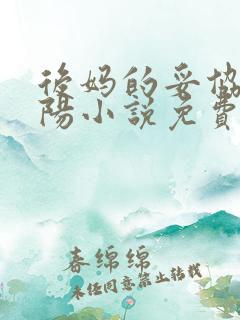 後妈的妥协
陽小説免費
春绵绵
未任同意禁止转载